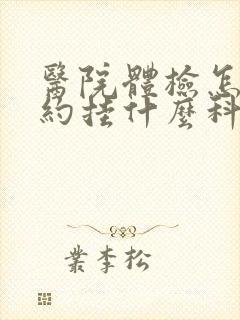 醫院體檢怎
約挂什麼科
業李松